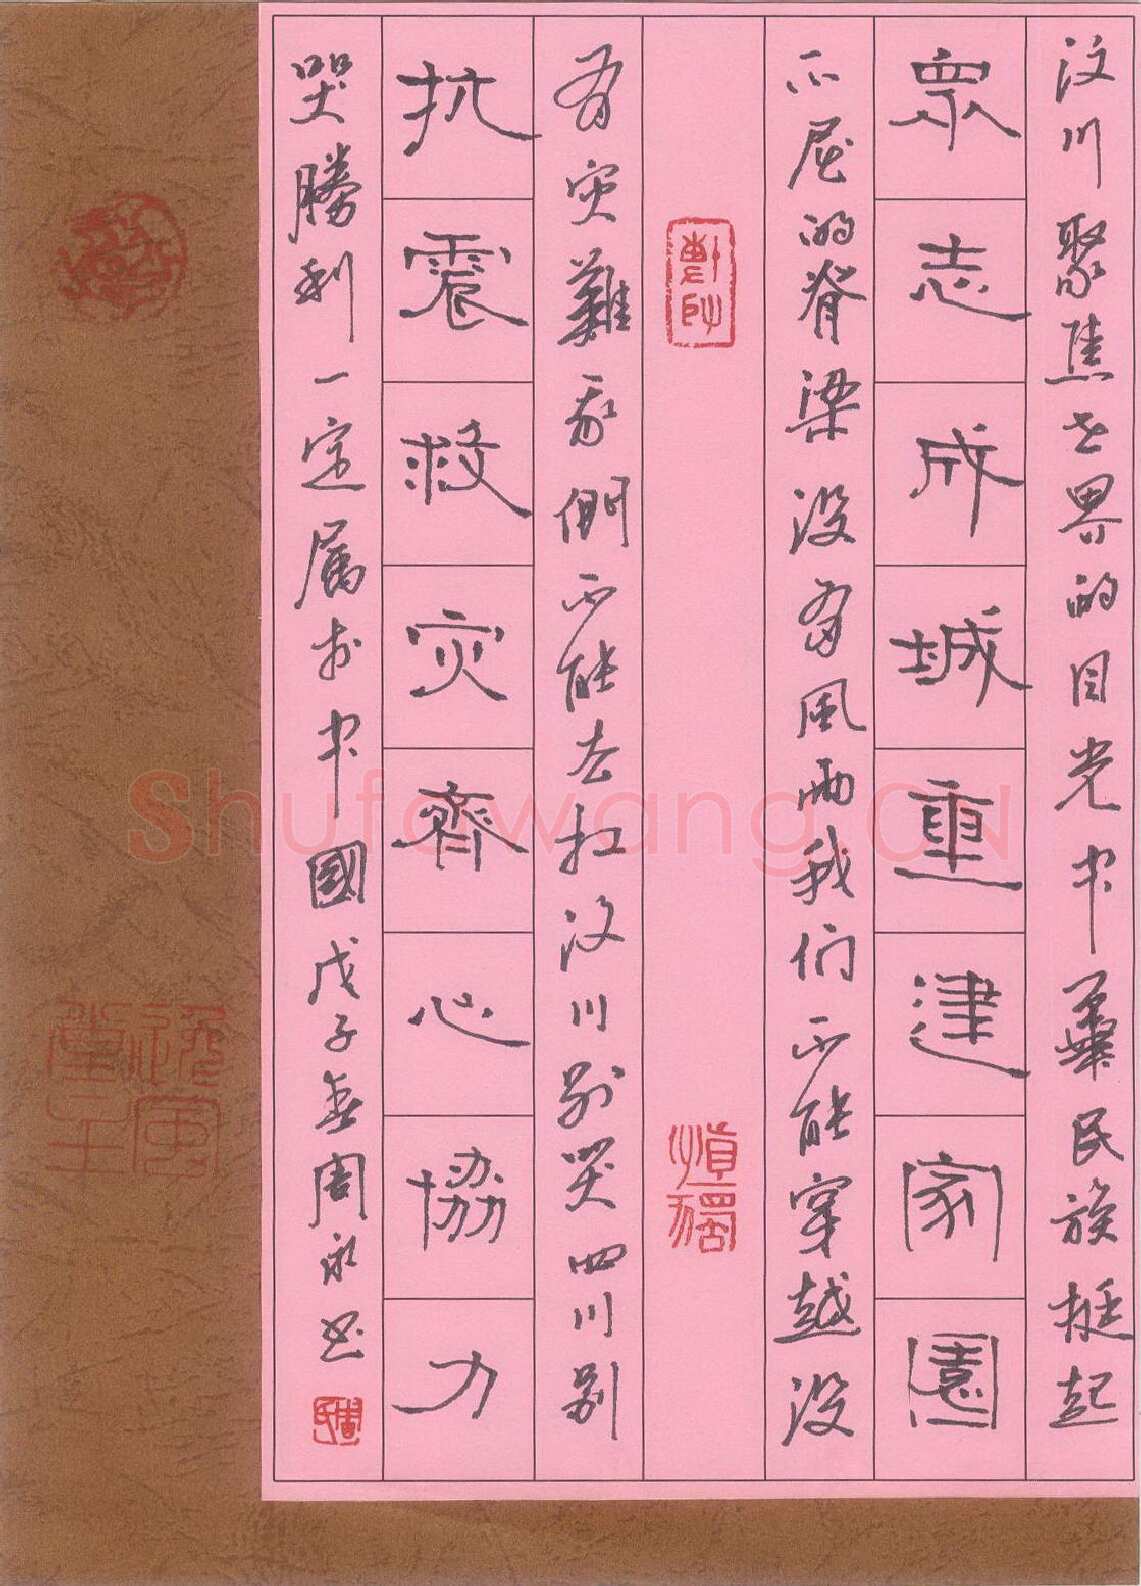 汶川聚焦世界的目光中華民族挺起
眾志成城重建家園
不屈的脊梁没有風雨我们不能穿越没
有灾難我們不能去扛汶川别哭四川别
抗震救灾齊心協力
哭勝利一定属於中國戊子春周永书
慎獨
周氏
Shufawang.CN